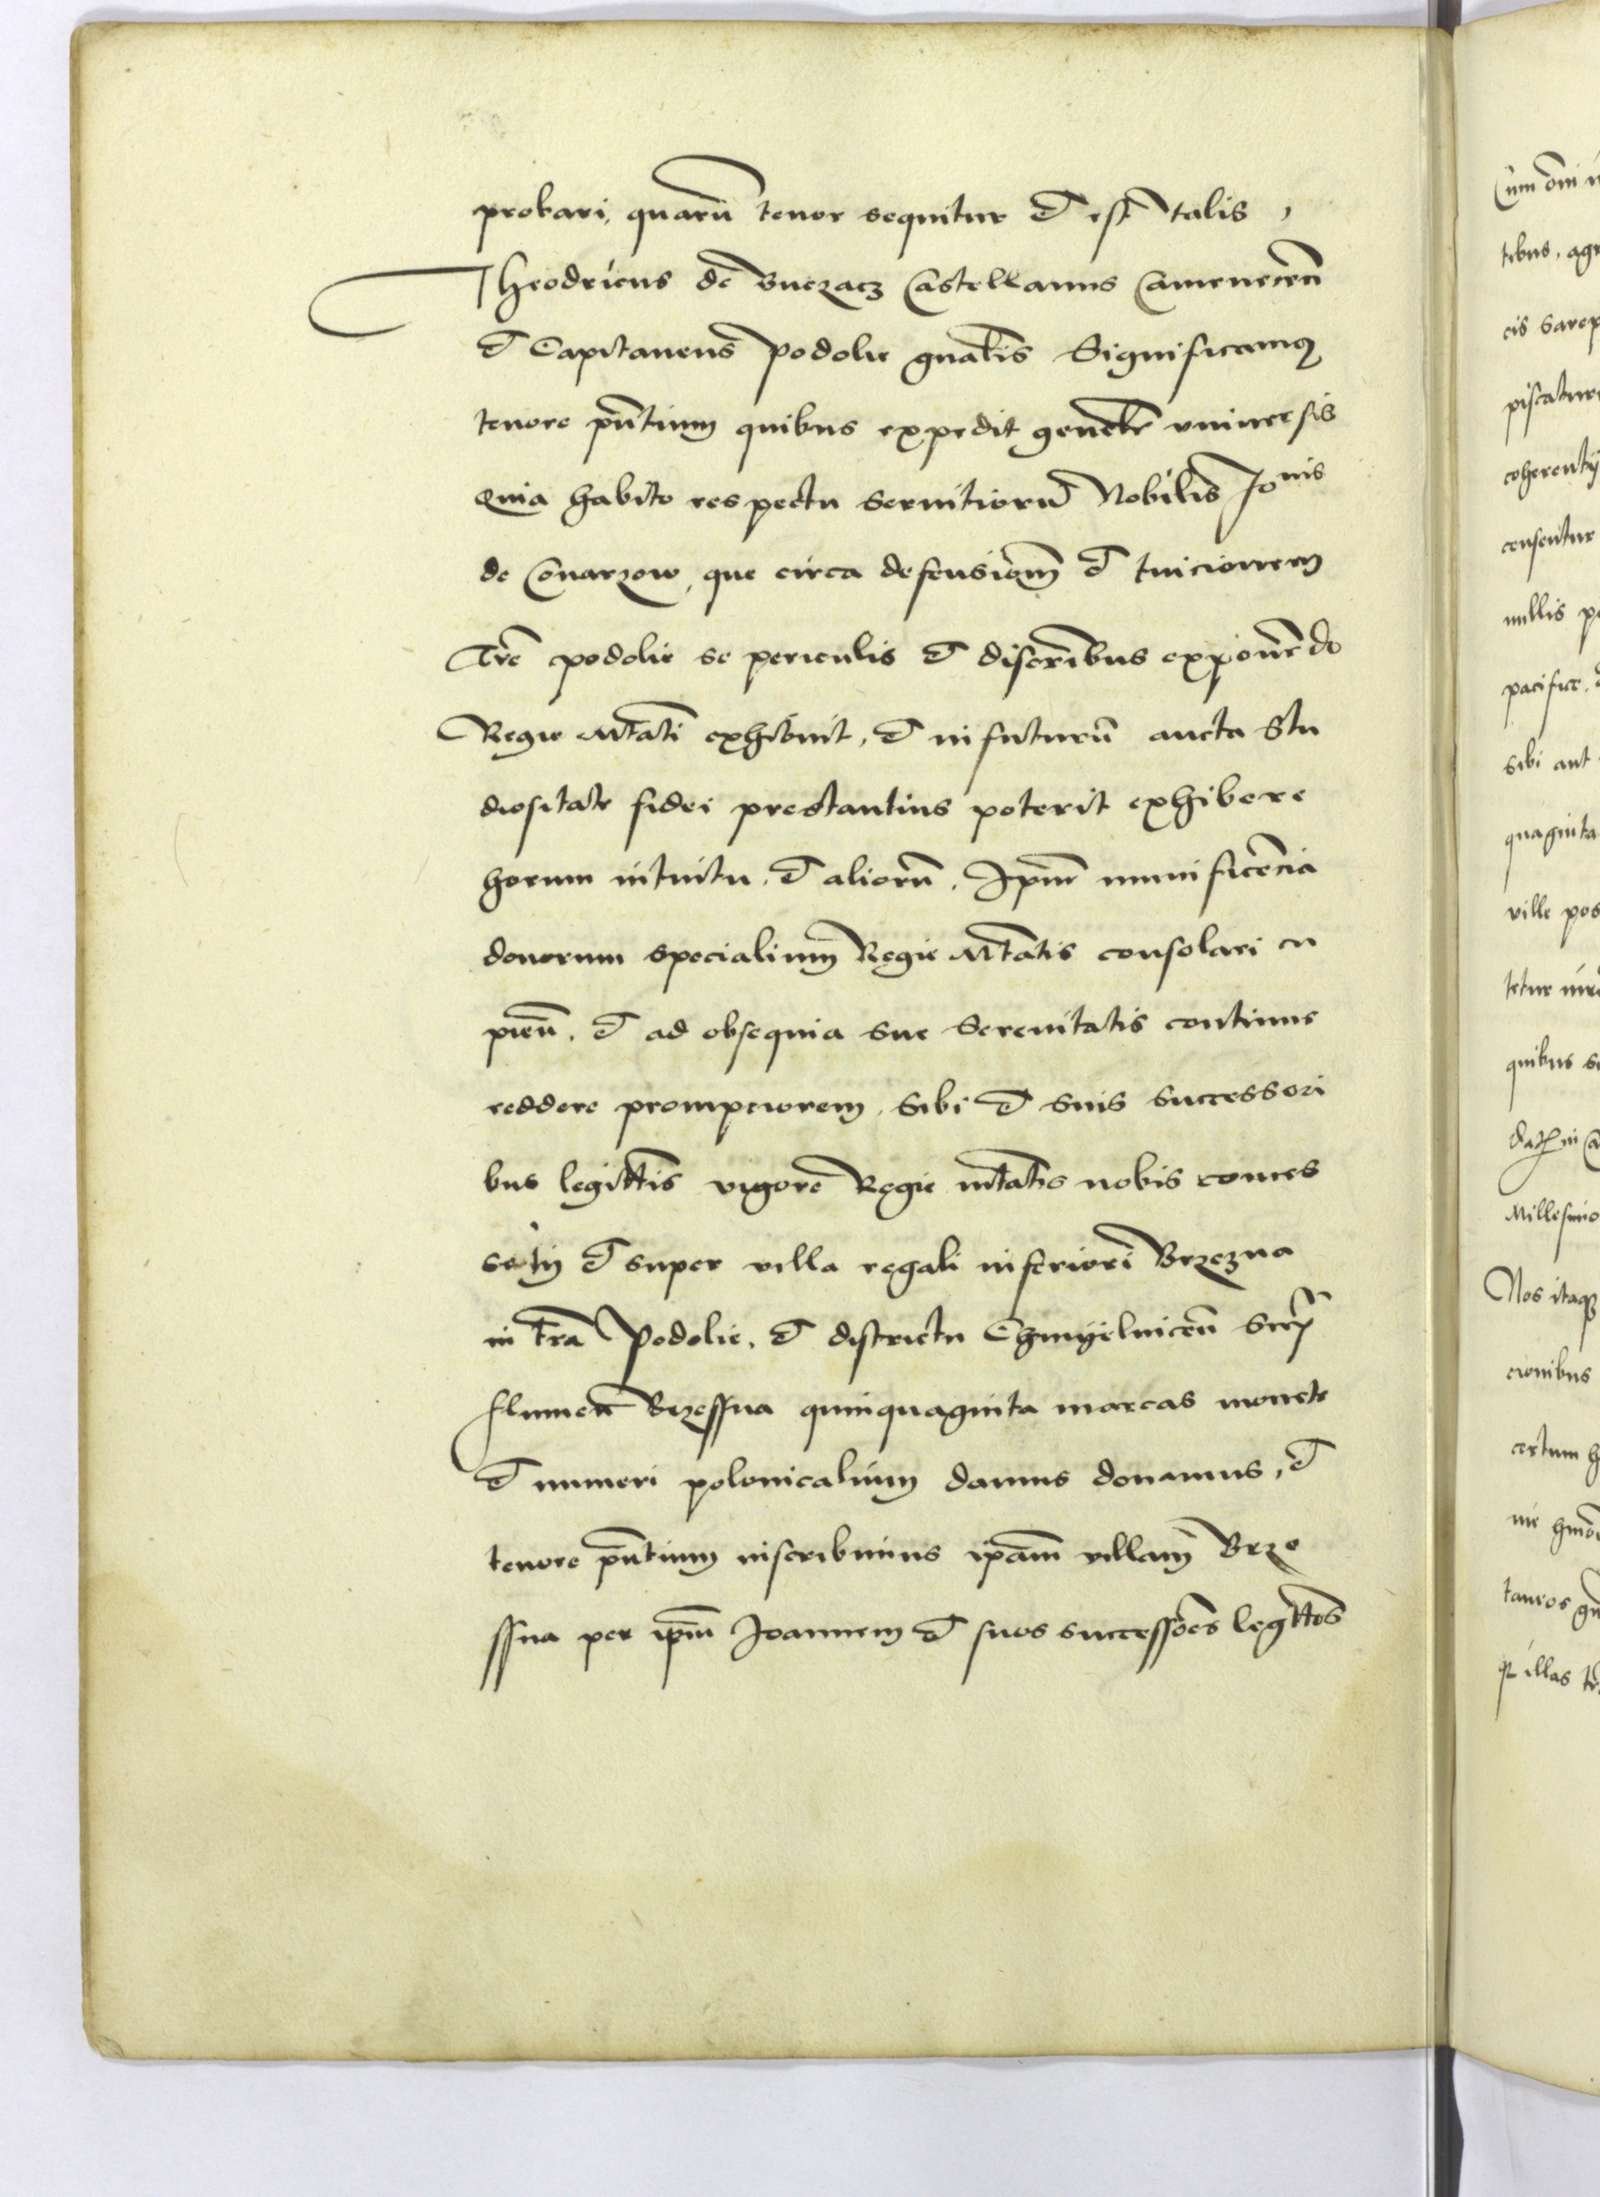 probari, quarū tenor sequitur et est talis,
Theodricus de Buczacz Castellanus Camenecen̄
et Capitaneus Podolie gn̄alis Significamus
tenore pn̄tium quibus expedit gene͞r vniuersis
Quia habito respectu seruitiorū Nobilis Jo͞nis
de Conarzow, que circa defension̄em et tuicionem
Tr̄e podolie se periculis et discri͞bus exponendo
Regie Mt̄ati exhibuit, et in futurū aucta Stu
diositate fidei prestantius poterit exhibere
horum intuitu, et aliorū, Ip̄m munificēcia
donorum specialium Regie Mt̄atis consolari cu
pien̄, et ad obsequia sue Serenitatis continue
reddere promptiorem, Sibi et suis successori
bus legitt̄is vigore Regie mt̄atis nobis conces
se in et super villa regali inferiori Brzezna
in tr̄a Podolie, et districtu Chmyelnicen̄
flumen Brzessna quinquaginta marcas monete
et numeri polonicalium damus donamus, et
tenore pn̄tium inscribimus ip̄am villam Brze
ssna per ip̄m Joannem et suos successōes legitt̄os
Cum om̄i
tibus, agr
cis
piscatur
coherentij
censentur
nullis p
pacifice,
sibi aut
quaginta
ville pos
tetur
quibus s
Millesimo
Nos itaque
cionibus
certum h
illas